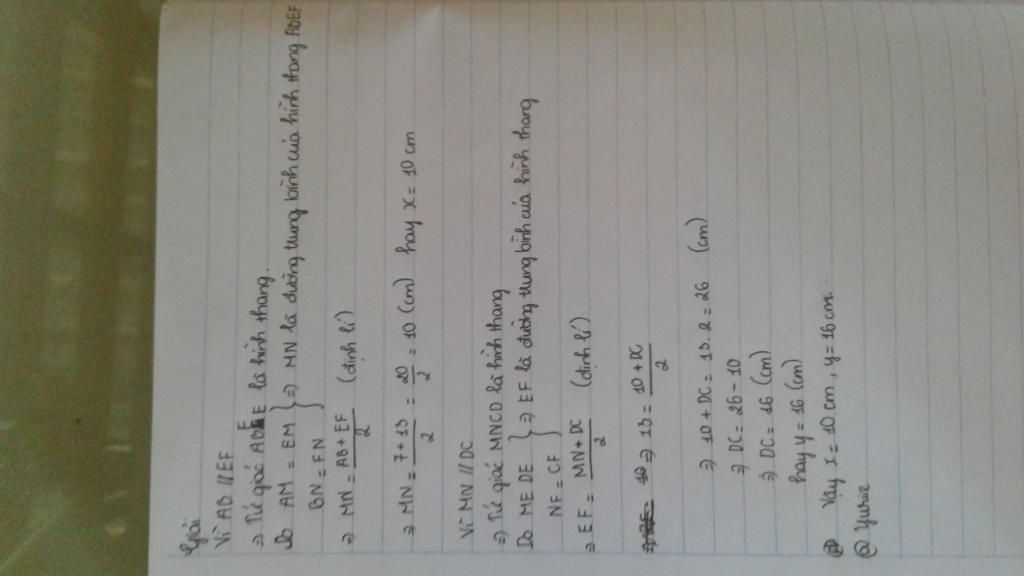 Giải
Vì AB // EF
⇒ Tứ giác ABFE là hình thang.
Do AM = EM } ⇒ MN là đường trung bình của hình thang ABEF
BN = FN
⇒ MN = (AB + EF)/2 (định lí)
⇒ MN = (7 + 13)/2 = 20/2 = 10 (cm) hay x = 10 cm
Vì MN // DC
⇒ Tứ giác MNCD là hình thang
Do ME DE } ⇒ EF là đường trung bình của hình thang
NF = CF
⇒ EF = (MN + DC)/2 (định lí)
⇒ 13 = (10 + DC)/2
⇒ 10 + DC = 13.2 = 26 (cm)
⇒ DC = 26 - 10
⇒ DC = 16 (cm)
hay y = 16 (cm)
Vậy x = 10 cm, y = 16 cm